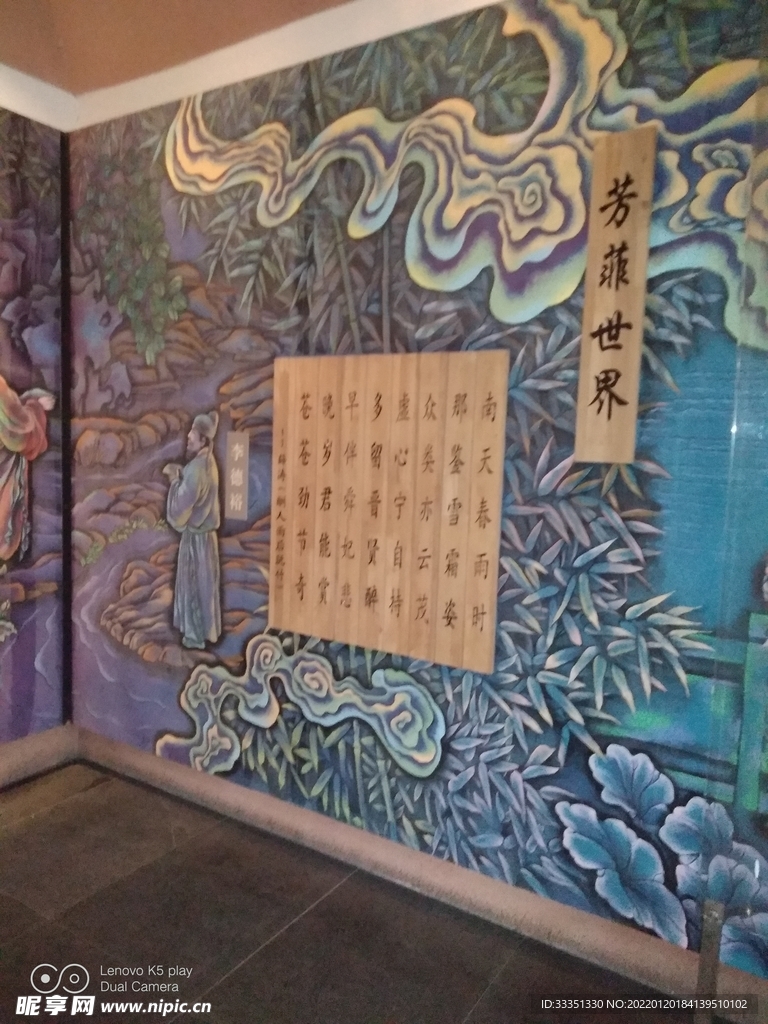 芳菲世界
南天春雨时
那鉴雪霜姿
众类亦云茂
虚心宁自持
多留晋贤醉
早伴舜妃悲
晚岁君能赏
苍苍劲节奇
——薛涛《酬人雨后玩竹》
李德裕
Lenovo K5 play
Dual Camera
昵享网 www.nipic.cn
ID:33351330 NO:20220120184139510102